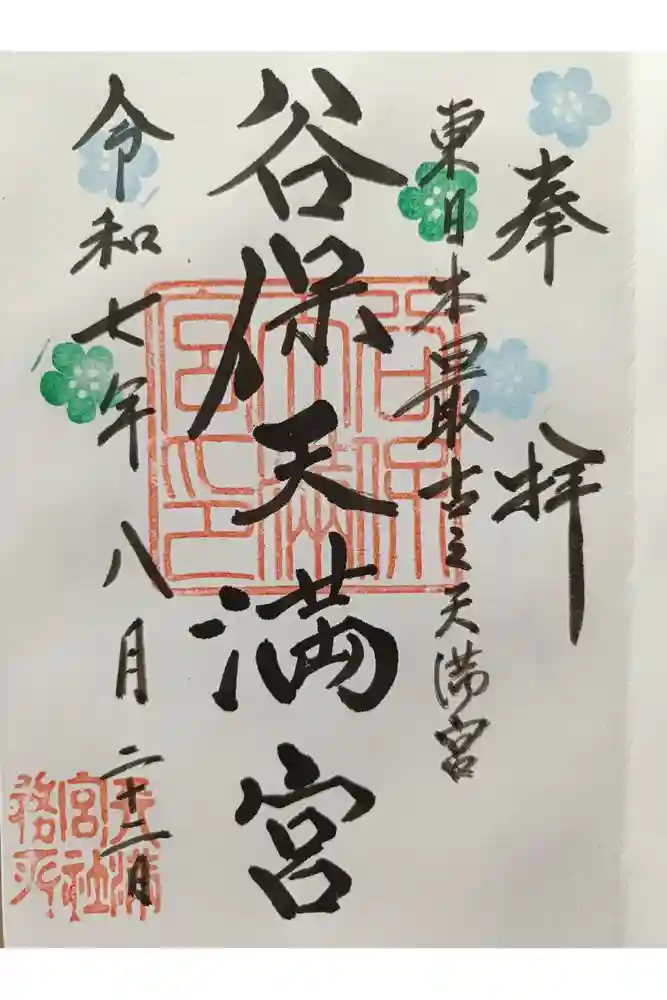 奉拝
東日本最古之天満宮
谷保天満宮
令和七年八月二十二日
谷保
天満
宮印
天満
宮社
務所